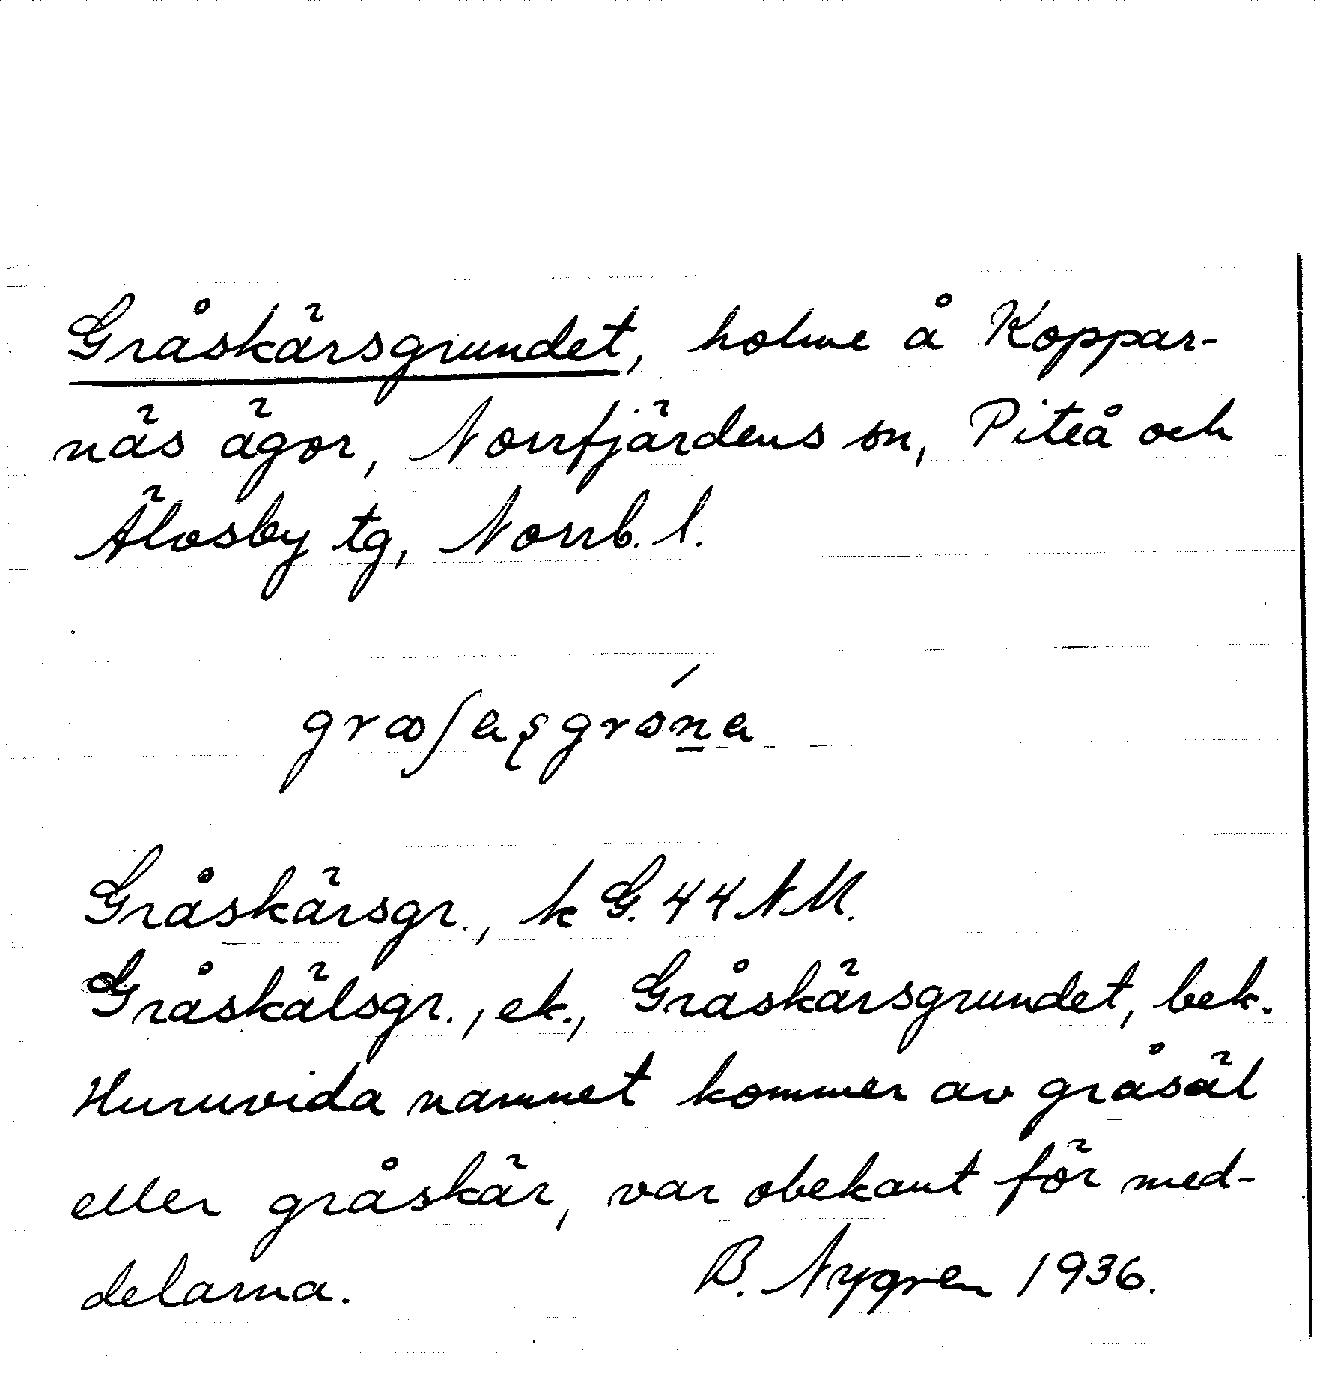 Gråskärsgrundet, holme å Koppar-
näs ägor, Norrfjärdens sn, Piteå och
Älvsby tg, Norrb. l.
Gråskärsgr., k G. 44 NM.
Gråskälsgr., ek., Gråskärsgrundet, bek.
Huruvida namnet kommer av gråsäl
eller gråskär, var obekant för med-
delarna. B. Nygren 1936.